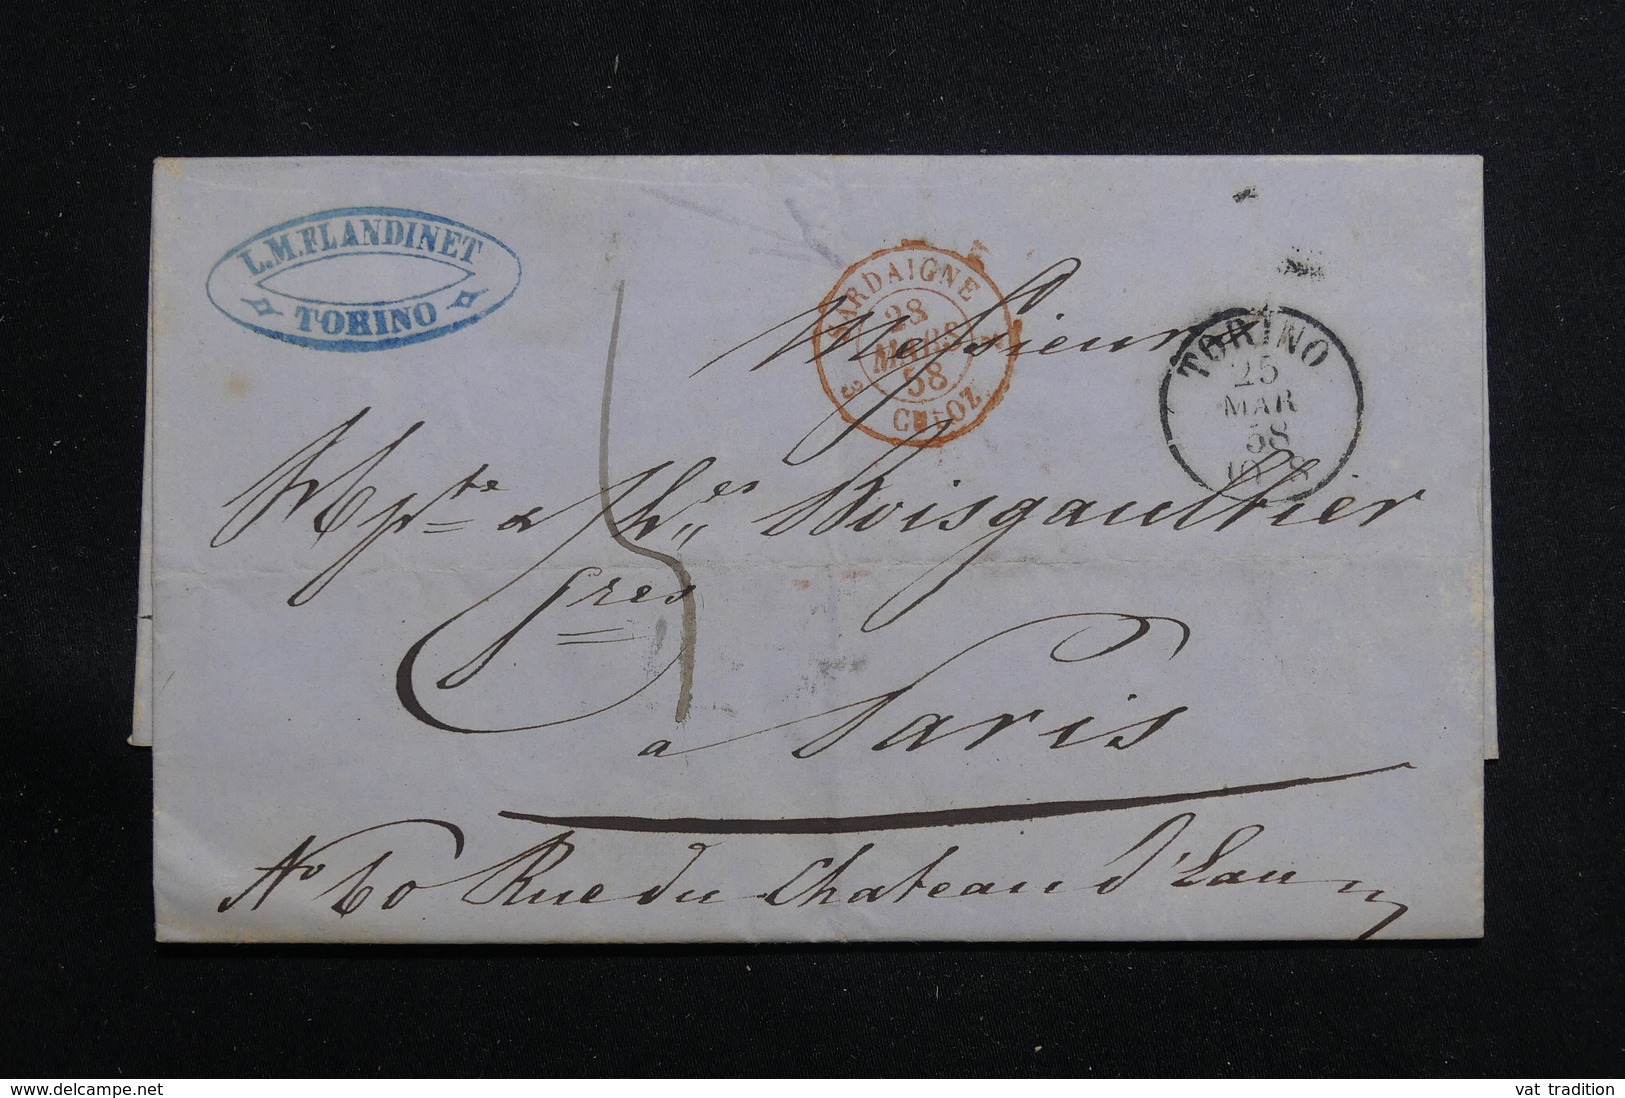 L.M. FLANDINET
TORINO
SARDAIGNE
28
MARS
58
3 CULOZ 3
TORINO
25
MAR
58
Messieurs
Hpte & Ch.es Boisgaulthier
frères
à Paris
No 60 Rue du Chateau d'Eau
© Delcampe.net
vat tradition